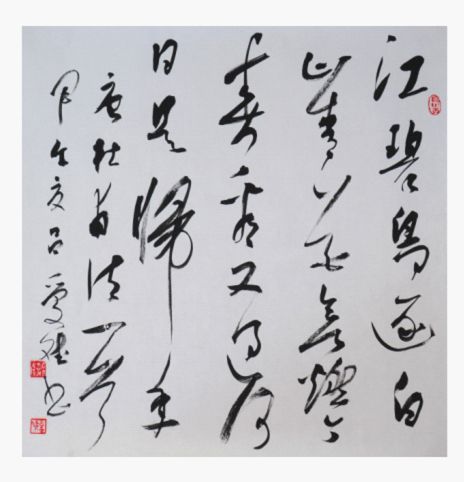 江碧鳥逾白
山青花欲燃今
春看又過何
日是歸年
唐杜甫诗一首
甲午夏吕书